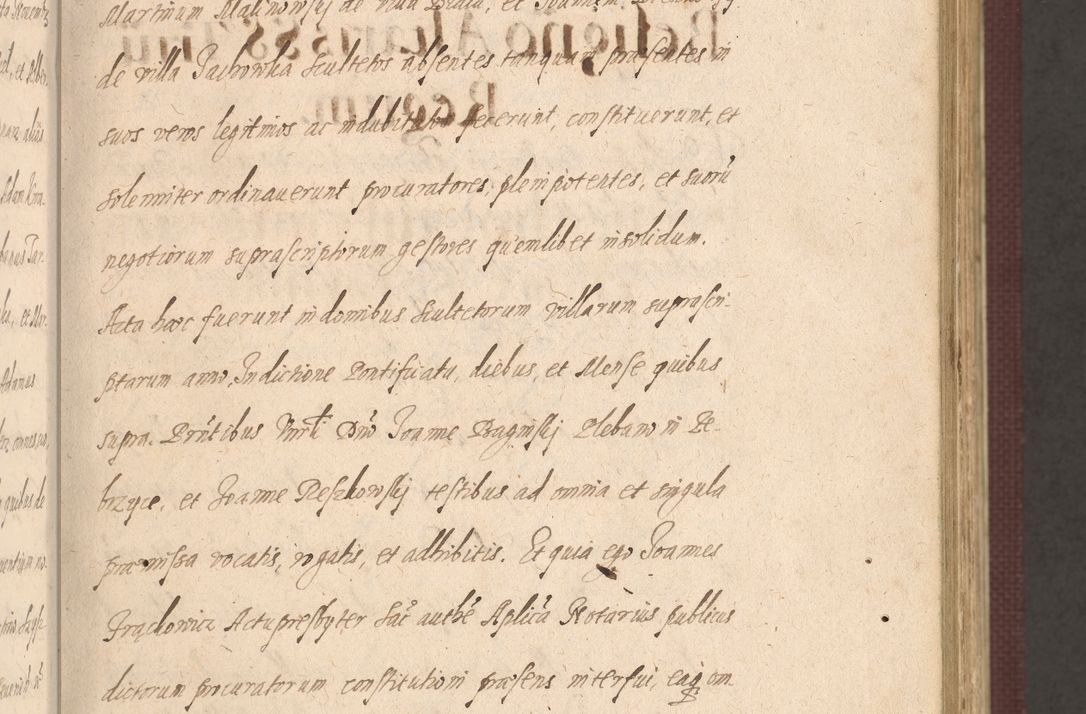 Martinum Malinowskj de villa
de villa Jachowka Scultetos absentes tanquam præsentes in
suos veros legitimos ac indubitatos fecerunt, constituerunt, et
solemniter ordinauerunt procuratores, plenipotentes, et suorũ
negotiorum suprascriptorum gestores quemlibet insolidum.
Acta hæc fuerunt in domibus Scultetorum villarum suprascri-
ptarum anno, Indictione Pontificatu, diebus, et Mense quibus
supra. Prñtibus Dnõ Joanne Plebano in
et Joanne Reszkowskj testibus ad omnia et singula
præmissa vocatis, rogatis, et adhibitis. Et quia ego Joannes
Actupresbyter Sac̃ authẽ Aplicã Notarius publicus
dictorum procuratorum constitutioni præsens interfui, eaq̃ om-